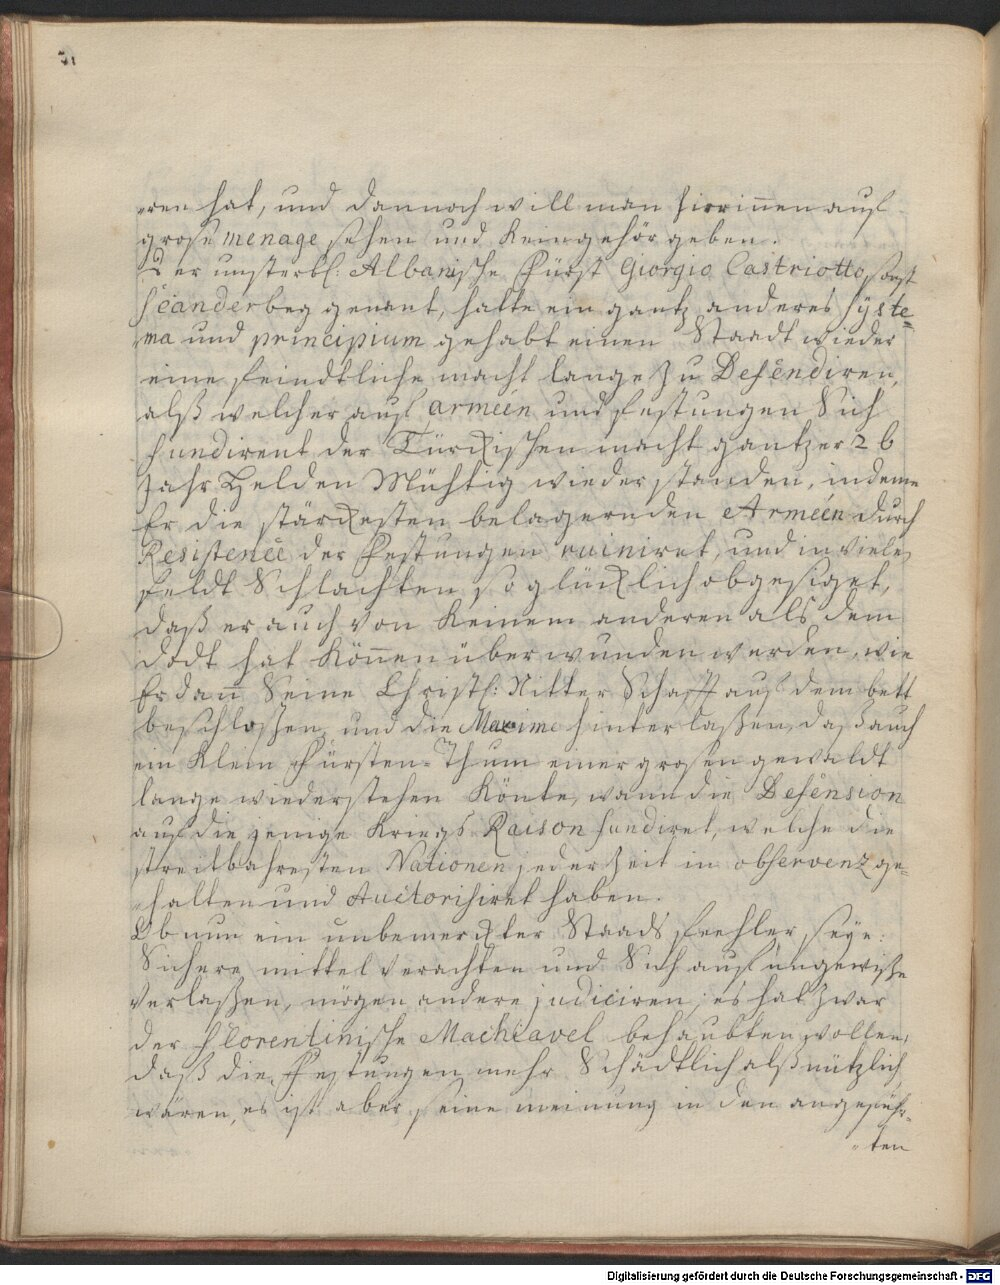 „ren hat, und dannoch will man hierinnen auf
grose menage sehen und kein gehör geben.
Der unsterbl: Albanische Fürst Giorgio Castriotto, sonst
Scanderbeg genant, hatte ein gantz anderes syste-
ma und principium gehabt einen Staadt wieder
eine feindtliche macht lange zu Defendiren,
alß welcher auf armeén und festungen Sich
fundirent der Türckischen macht gantzer 26
Jahr Helden Mühtig wiederstanden, indeme
Er die stärckesten belagernden Armeén durch
Resistence der Festungen ruiniret, und in viele
feldt Schlachten so glücklich obgesiget,
daß er auch von keinem anderen als dem
Dodt hat können überwunden werden, wie
Er dann Seine Christl: Ritter Schafft auf dem bett
beschloßen, und die Maxime hinterlaßen, daß auch
ein klein Fürsten-Thum einer grosen gewaldt
lange wiederstehen könte, wann die Defension
auf die jenige Kriegs Raison fundiret, welche die
streitbahresten Nationen jederzeit in observenz ge-
„halten und Auctorisiret haben.
Ob nun ein unbemerckter Staads feehler seye:
Sichere mittel verachten und Sich auf ungewiße
verlaßen, mögen andere judiciren; es hat zwar
der Florentinische Machiavel behaubten wollen,
daß die Festungen mehr Schädtlich alß nützlich
wären, es ist aber seine meinung in den angeführ-
„ten
Digitalisierung gefördert durch die Deutsche Forschungsgemeinschaft - DFG